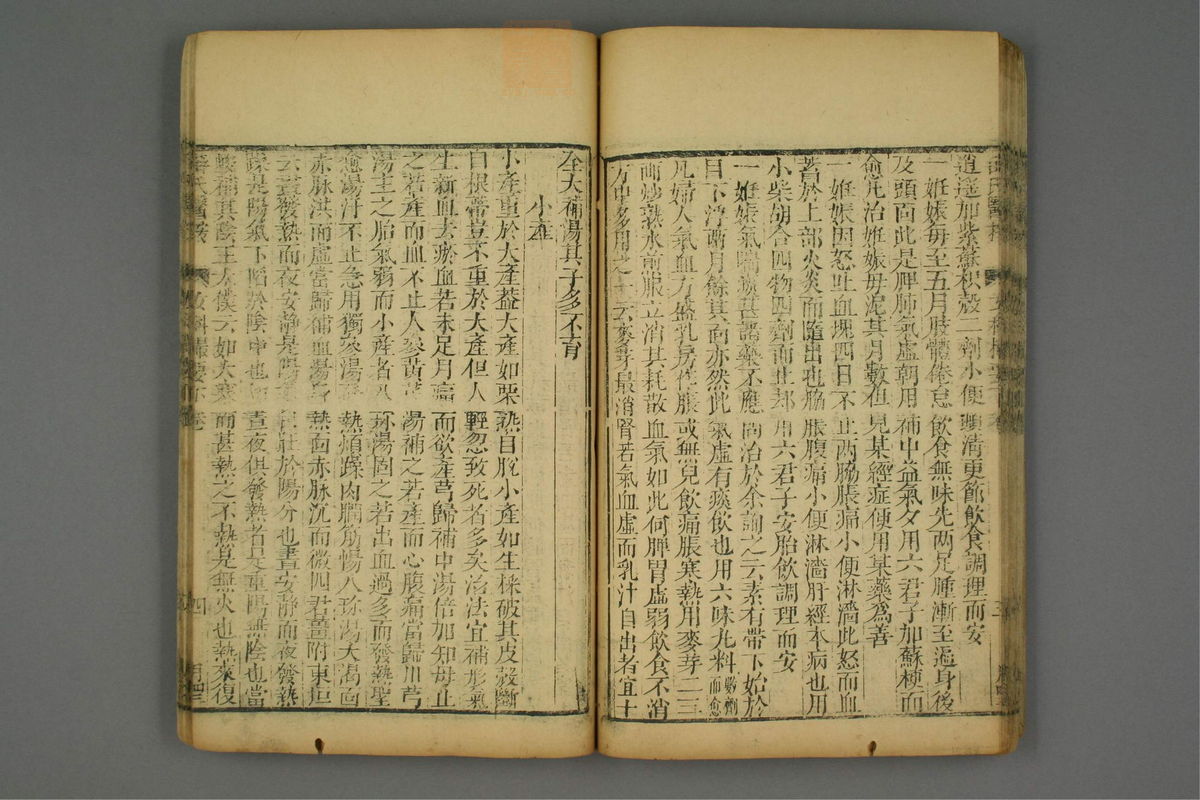 逍遙加紫蘇枳殼二劑小便順清更節飲食調理而安
一姙娠每至五月肢體倦怠飲食無味先兩足腫漸至遍身後
及頭面此是脾肺氣虛朝用補中益氣夕用六君子加蘇梗而
愈凡治姙娠毋泥其月數但見某經症便用某藥為善
一姙娠因怒吐血塊四日不止兩脇脹痛小便淋濇此怒而血
蓄於上部火炎而隨出也脇脹腹痛小便淋濇肝經本病也用
小柴胡合四物四劑而止却用六君子安胎飲調理而安
一姙娠氣喘痰甚諸藥不應問治於余詢之云素有帶下始於
目下浮兩月餘其面亦然此氣虛有痰飲也用六味丸料數劑而愈
凡婦人氣血方盛乳房作脹或無兒飲痛脹寒熱用麥芽二三
兩炒熟水煎服立消其耗散血氣如此何脾胃虛弱飲食不消
方中多用之一云麥芽最消腎若氣血虛而乳汁自出者宜十
全大補湯其子多不育
小產
小產重於大產蓋大產如栗熟自脫小產如生採破其皮殼斷
自根蒂豈不重於大產但人輕忽致死者多矣治法宜補形氣
生新血去瘀血若未足月痛而欲產芎歸補中湯倍加知母止
之若產而血不止人參黃芪湯補之若產而心腹痛當歸川芎
湯主之胎氣弱而小產者八珍湯固之若出血過多而發熱聖
愈湯汗不止急用獨參湯發熱煩躁肉瞤筋惕八珍湯大渴面
赤脉洪而虛當歸補血湯身熱面赤脉沉而微四君薑附東垣
云晝發熱而夜安靜是陽氣自旺於陽分也晝安靜而夜發熱
躁是陽氣下陷於陰中也晝夜俱發熱者是重陽無陰也當
峻補其陰王太僕云如大寒而甚熱之不熱是無火也熱來復